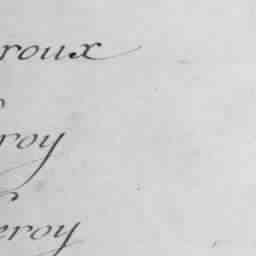 roux
roy
eroy